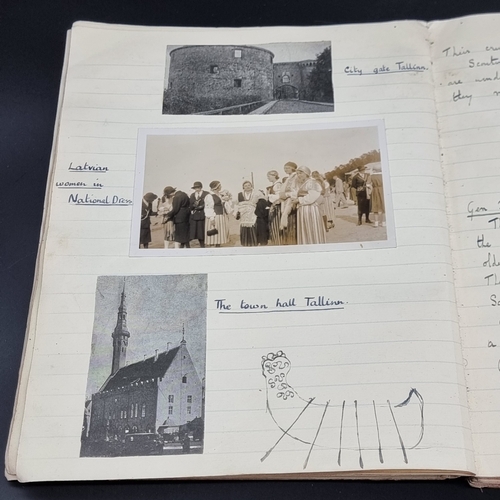 City gate Tallinn.
Latvian
women in
National Dress
The town hall Tallinn.
Their
Scout
are
they
Gen
Th
the
olde
Th
Sc
a